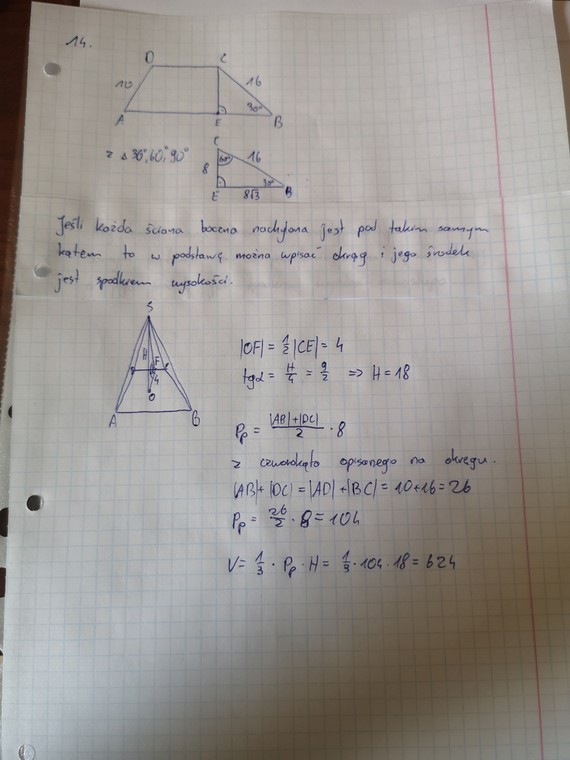 14.
D C
10 16
30°
A E B
z Δ 30°, 60°, 90°
C
60° 16
8
30° B
E 8√3
Jeśli każda ściana boczna nachylona jest pod takim samym
kątem to w podstawę można wpisać okrąg i jego środek
jest spodkiem wysokości.
S
H F
4
O
A B
|OF| = 1/2 |CE| = 4
tgα = H/4 = 9/2 => H = 18
Pp = (|AB|+|DC|)/2 · 8
z czworokąta opisanego na okręgu.
|AB|+|DC| = |AD|+|BC| = 10+16 = 26
Pp = 26/2 · 8 = 104
V = 1/3 · Pp · H = 1/3 · 104 · 18 = 624